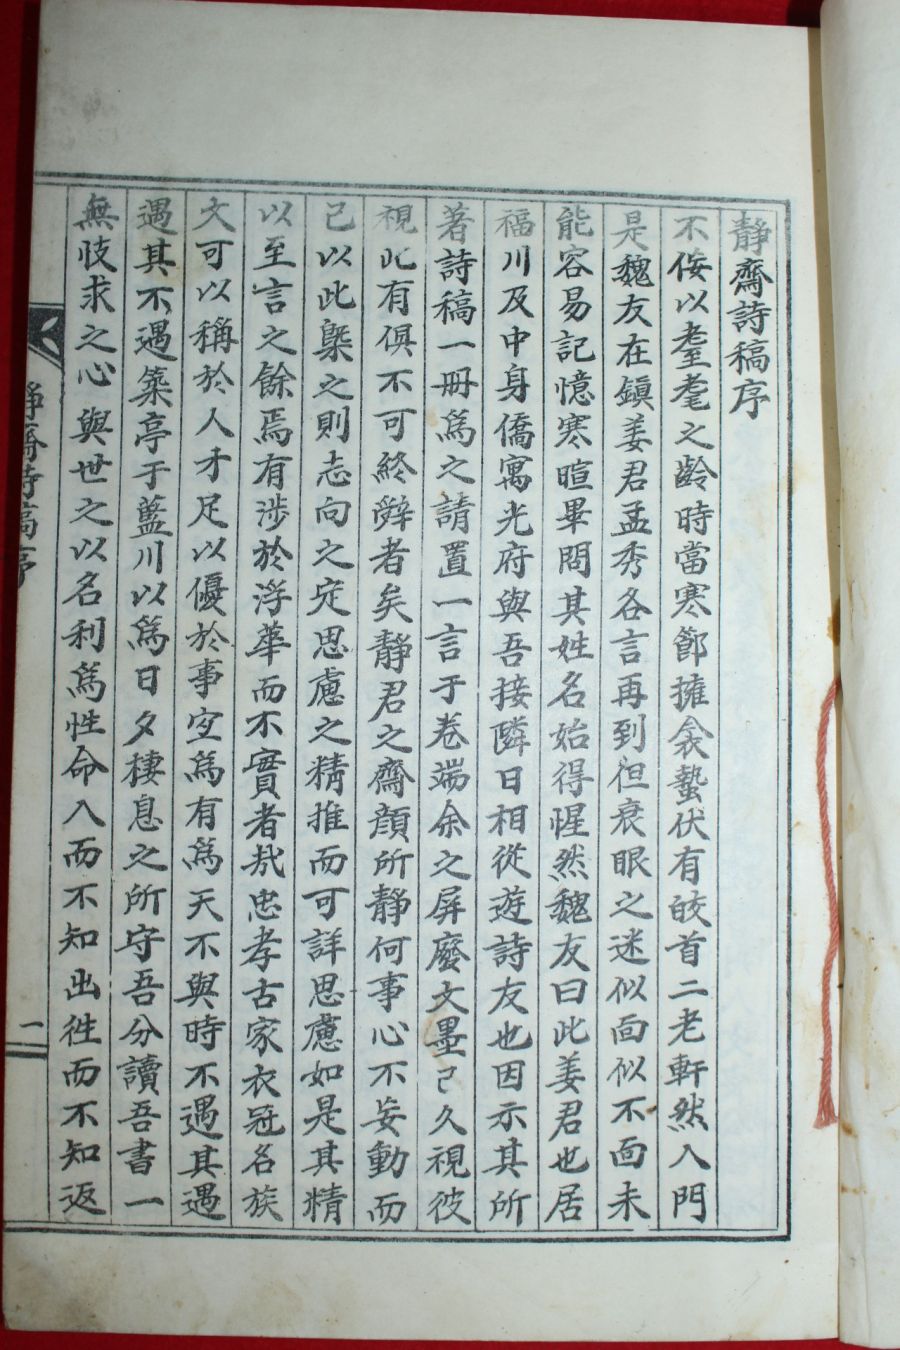 靜齋詩稿序
不侫以耋耄之齡時當寒節擁衾蟄伏有皎首二老軒然入門
是魏友在鎭姜君孟秀各言再到但衰眼之迷似面似不面未
能容易記憶寒暄畢問其姓名始得惺然魏友曰此姜君也居
福川及中身僑寓光府與吾接隣日相從遊詩友也因示其所
著詩稿一冊爲之請置一言于卷端余之屏廢文墨已久視彼
視此有俱不可終辤者矣靜君之齋顔所靜何事心不妄動而
己以此槩之則志向之㝎思慮之精推而可詳思慮如是其精
以至言之餘焉有涉於浮華而不實者㢤忠孝古家衣冠名族
文可以稱於人才足以優於事空爲有爲天不與時不遇其遇
遇其不遇築亭于藍川以爲日夕棲息之所守吾分讀吾書一
無忮求之心與世之以名利爲性命入而不知出徃而不知返
靜齋詩稿序
一